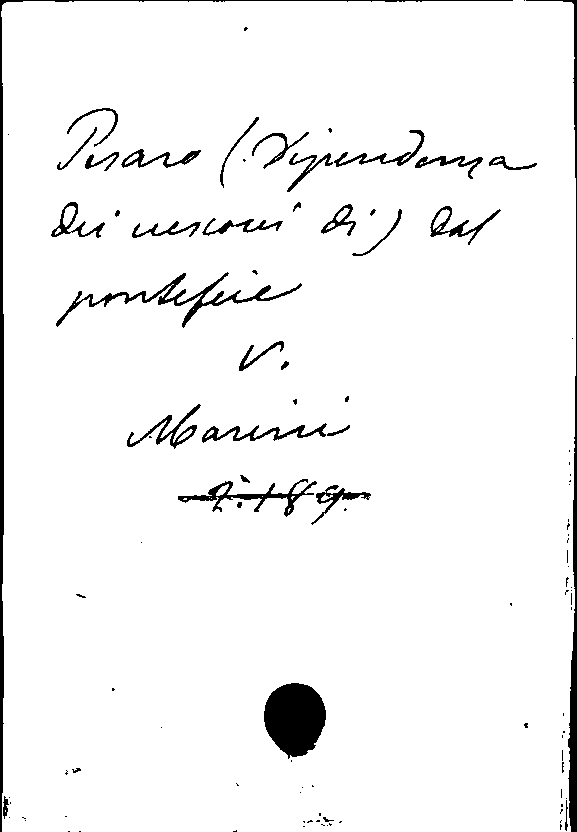 Pesaro (Dipendenza
dei vescovi di) dal
pontefice
V.
Marini
2.189